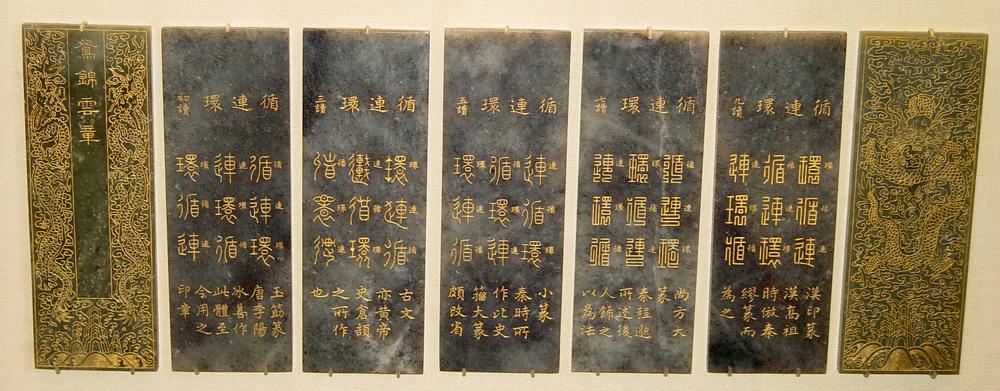 鴛錦雲章
循連環 初讀
循連環
連環循
環循連
玉筯篆
唐李陽
冰善作
此體至
今用之
印章
循連環 三讀
環連循
連循環
循環連
古文
亦黃帝
史倉頡
之所作
也
循連環 五讀
連循環
循環連
環連循
小篆
秦時所
作比史
籀大篆
頗改省
循連環 七讀
循連環
環循連
連環循
尚方大
篆
秦程邈
所述後
人飾之
以為法
循連環 九讀
環循連
循連環
連環循
漢印篆
漢高祖
時倣秦
繆篆而
為之